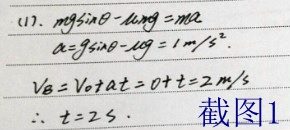 (1). mgsinθ - μmg = ma
a = gsinθ - μg = 1m/s².
V_B = V₀ + at = 0 + t = 2m/s
∴ t = 2S.
截图1